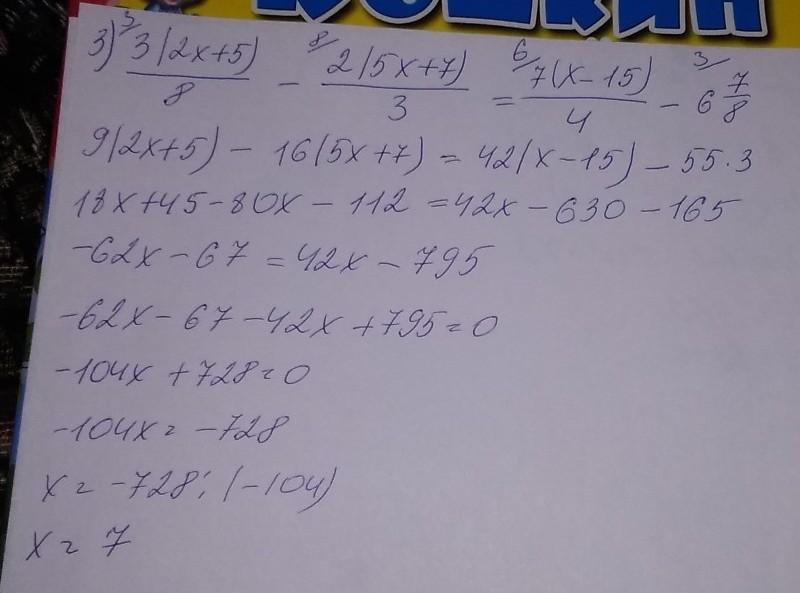 3) ³/ 3(2x+5)/8 - ⁸/ 2(5x+7)/3 = ⁶/ 7(x-15)/4 - ³/ 6 7/8
9(2x+5) - 16(5x+7) = 42(x-15) - 55·3
18x+45-80x-112 = 42x-630-165
-62x-67 = 42x-795
-62x-67-42x+795=0
-104x+728=0
-104x=-728
x=-728:(-104)
x=7